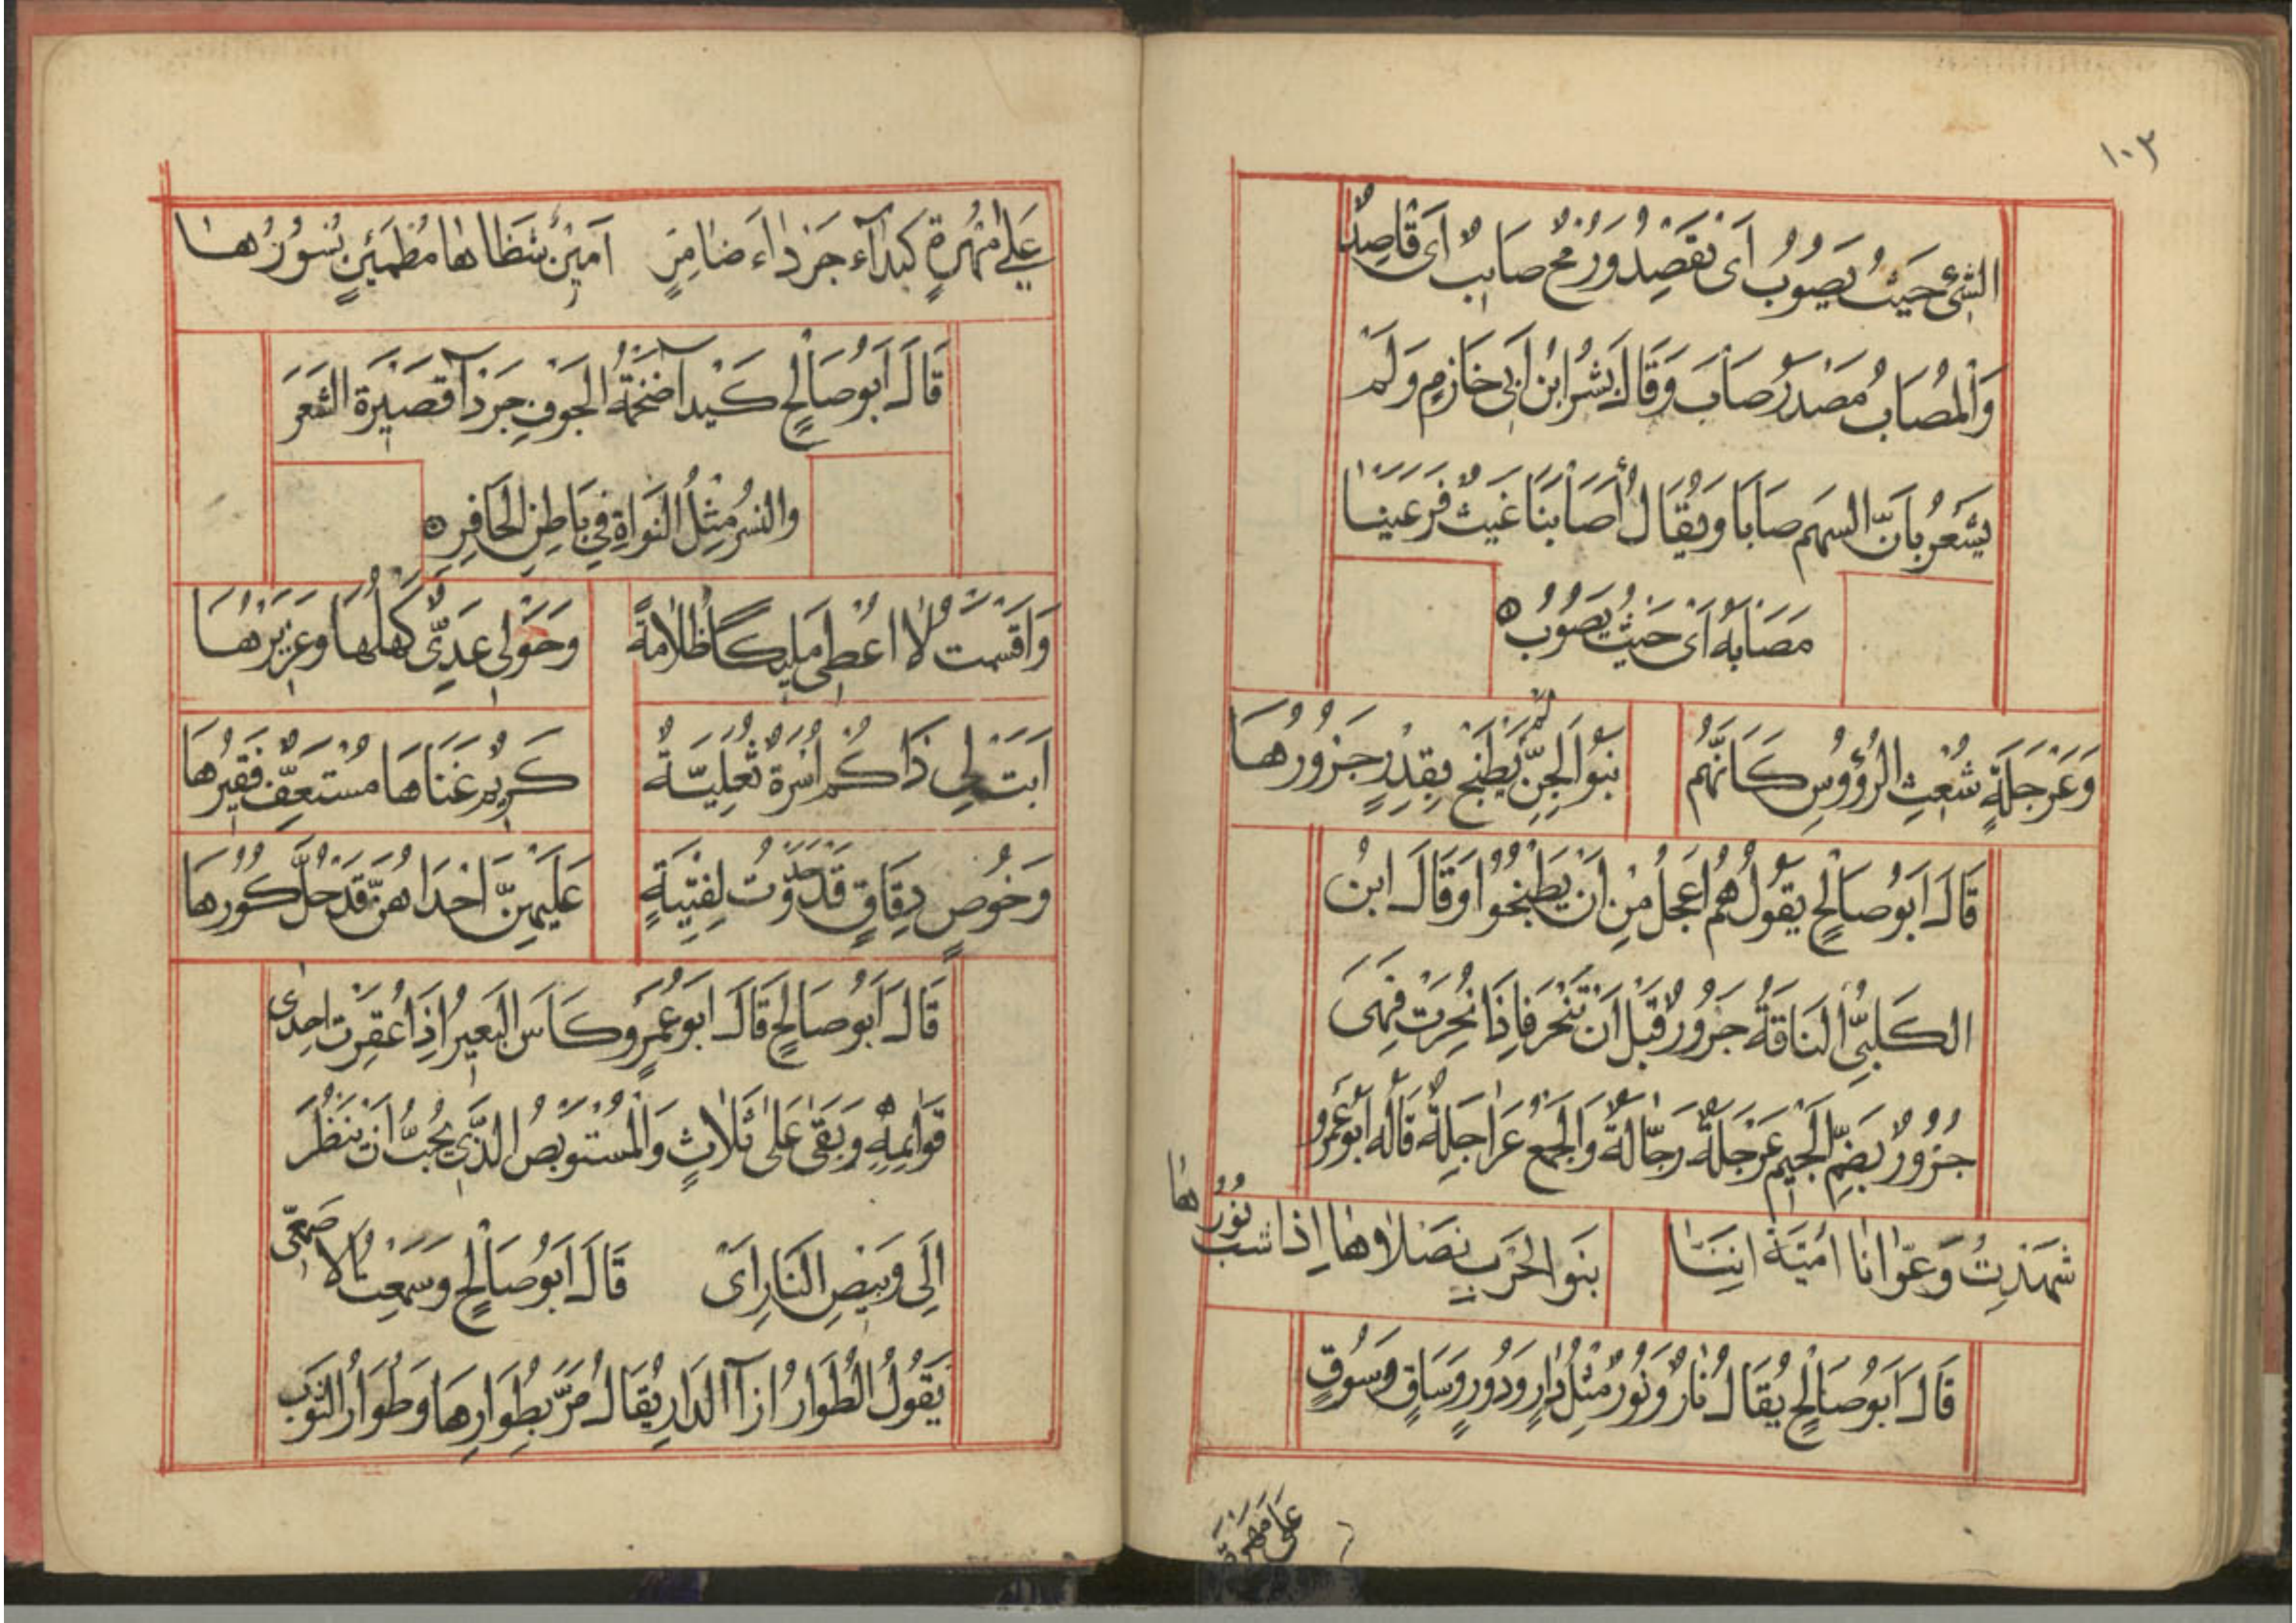 ١٠٣
الشَّيْءُ حَيْثُ يَصُوبُ اَىْ تَقْصِدُ وَرُمْحٌ صَايِبٌ اَىْ قَاصِدٌ
وَالْمُصَابُ مَصْدَرُ صَابَ وَقَالَ بِشْرُ ابْنُ اَبِى خَازِمٍ وَلَمْ
يَشْعُرْ بِاَنَّ السَهَم صَابَا وَيُقَالُ أَصَابَنَا غَيْثٌ فَرَعَيْنَا
مَصَابَهُ اَىْ حَيْثُ يَصُوبُ
وَعَرْجَلَةٍ شُعْثِ الرُؤُوسِ كَاَنَّهُم بَنُوا الْجِنِّ لَمْ يُطْبَخْ بِقِدْرٍ جَزُورُهَا
قَالَ اَبُوصَالْحٍ يَقُولُ هُمْ اَعْجَلُ مِنْ اَنْ يَطْبُخُوا وَقَالَ ابْنُ
الكَلْبِىِّ النَاقَةُ جَزُورٌ قَبْلَ اَنْ تُنْحَرَ فَاِذَا نُحِرَتْ فَهِىَ
جُزُورٌ بِضَمِّ الْجِيْمِ عَرْجَلَةٌ رَجَّالَةٌ وَالْجَمْعُ عَرَاجِلَةٌ قَالَهُ اَبُو عَمْرٍو
شَهِدْتُ وَعَوَّانَا اُمَيَّةُ اِنَنَا بَنَو الْحَرْبِ نَصْلَاوهَا اِذَا شب نُوْرُهَا
قَالَ اَبُوصَالْحٍ يُقَالُ نَارٌ وَنُورٌ مِثْلُ دَارٍ وَدُورٍ وَسَاقٍ وَسُوقٍ
عَلَى مَهْرَةٍ
عَلَى مُهْرَةٍ كَبْدَآء جَرْدَاءَ ضَامِرٍ اَمِيْنٍ شَظَاهَا مُطْمَئِنٍ نُسُوْرُهَا
قَالَ اَبُوصَالْحٍ كَبْدآ ضَخْمَةُ الْجَوْفِ جَرْدآ قَصِيْرَة الشَعَرَ
والنسرُ مِثْلُ النَوَاةِ فِى بَاطِنِ الْحَافِرِ
وَاَقْسَمْتُ لَا اُعْطِى مَلِيكًا ظُلَامَةً وَحَوْلِى عَدِىٌّ كَهْلُهَا وَعَزِيْزُهَا
اَبَتْ لِى ذَاكُم اُسْرَةٌ ثُعَلِيَّةٌ كَرِيْمٌ غَنَاهَا مُسْتَعِفٌّ فَقِيْرُهَا
وَخُوْصٍ دِقَاقٍ قَدْ حَدَوْتُ لِفِتْيَةٍ عَلَيْهِنَّ اِحْدَاهُنَّ قَدْ حُلَّ كُوْرُهَا
قَالَ اَبُوصَالْحٍ قَالَ اَبُو عَمْرٍو كَاَسَ الْبَعِيْرُ اِذَا عُقِرَتْ اِحْدَى
قَوَائِمِهِ وَبَقَى عَلَى ثَلَاثٍ وَالْمُسْتَوْبِصُ الَّذِى يُحِبُّ اَنْ يَنْظُرَ
اِلَى وَبِيْصِ النَارِ اَىْ قَالَ اَبُوصَالْحٍ وَسَمِعْتُ الاَصْمَعِّى
يَقُولُ الطُوَارُ اِزآ الدَارِ يُقَالُ مَرَّ بِطُوَارِهَا وَطُوَارُ الثَوْبِ